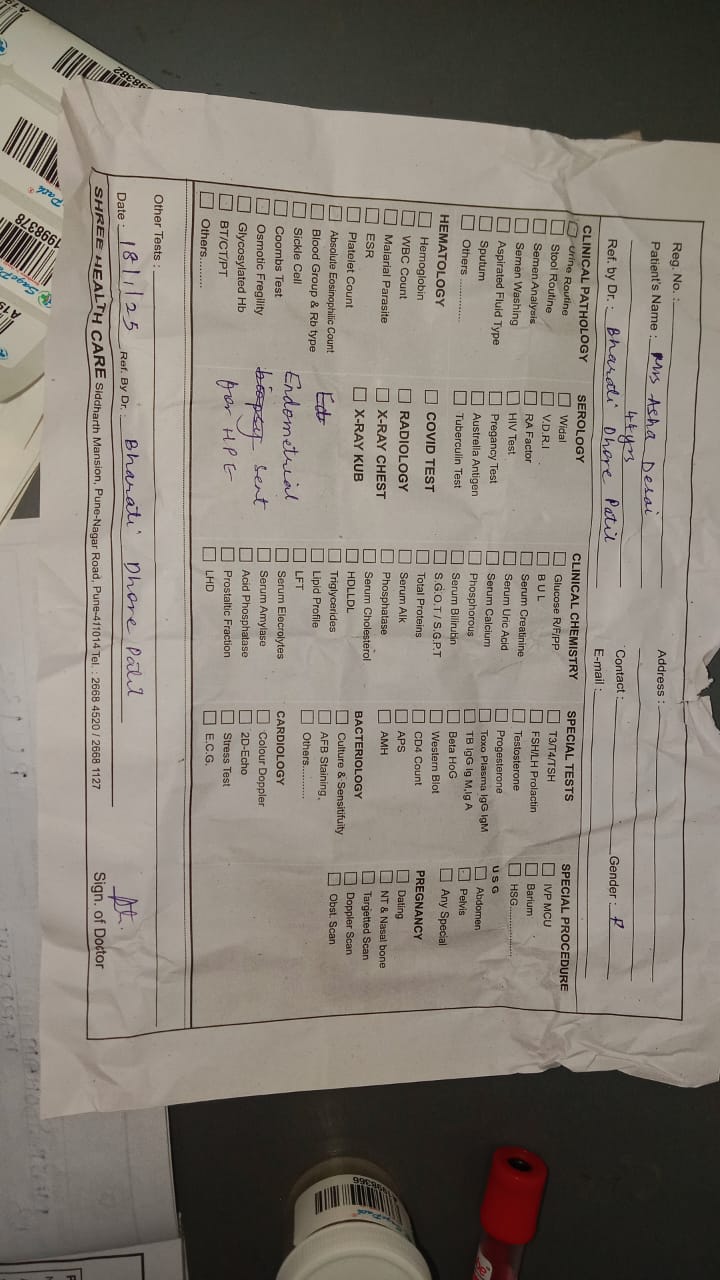 Reg. No. :
Patient's Name : Mrs Asha Desai
44yrs
Ref. by Dr. : Bharati Dhore Patil
Address :
Contact :
Gender : F
E-mail :
CLINICAL PATHOLOGY
Urine Routine
Stool Routine
Semen Analysis
Semen Washing
Aspirated Fluid Type
Sputum
Others ..............
HEMATOLOGY
Hemoglobin
WBC Count
Malarial Parasite
ESR
Platelet Count
Absolute Eosinophilic Count
Blood Group & Rb type
Sickle Cell
Coombs Test
Osmotic Fregility
Glycosylated Hb
BT/CT/PT
Others.........
SEROLOGY
Widal
V.D.R.I
RA Factor
HIV Test
Pregancy Test
Australia Antigen
Tuberculin Test
COVID TEST
RADIOLOGY
X-RAY CHEST
X-RAY KUB
Endometrial
biopsy sent
for HPE
CLINICAL CHEMISTRY
Glucose R/F/PP
B U L
Serum Creatinine
Serum Uric Acid
Serum Calcium
Phosphorous
Serum Bilirubin
S.G.O.T / S.G.P.T
Total Proteins
Serum Alk
Phosphatase
Serum Cholesterol
HDLLDL
Triglycerides
Lipid Profile
LFT
Serum Elecrolytes
Serum Amylase
Acid Phosphatase
Prostaltic Fraction
LHD
SPECIAL TESTS
T3/T4/TSH
FSH/LH Prolactin
Testosterone
Progesterone
Toxo Plasma IgG IgM
TB IgG Ig M,Ig A
Beta HoG
Western Blot
CD4 Count
APS
AMH
BACTERIOLOGY
Culture & Sensitifuity
AFB Staining,
Others...........
CARDIOLOGY
Colour Doppler
2D-Echo
Stress Test
E.C.G.
SPECIAL PROCEDURE
IVP MCU
Barium
HSG................
U S G
Abdomen
Pelvis
Any Special
PREGNANCY
Dating
NT & Nasal bone
Targetted Scan
Doppler Scan
Obst. Scan
Other Tests :
Date : 18/1/25 Ref. By Dr. Bharati Dhore Patil
Sign. of Doctor
SHREE HEALTH CARE Siddharth Mansion, Pune-Nagar Road, Pune-411014 Tel. : 2668 4520 / 2668 1127
1998378
A1998366